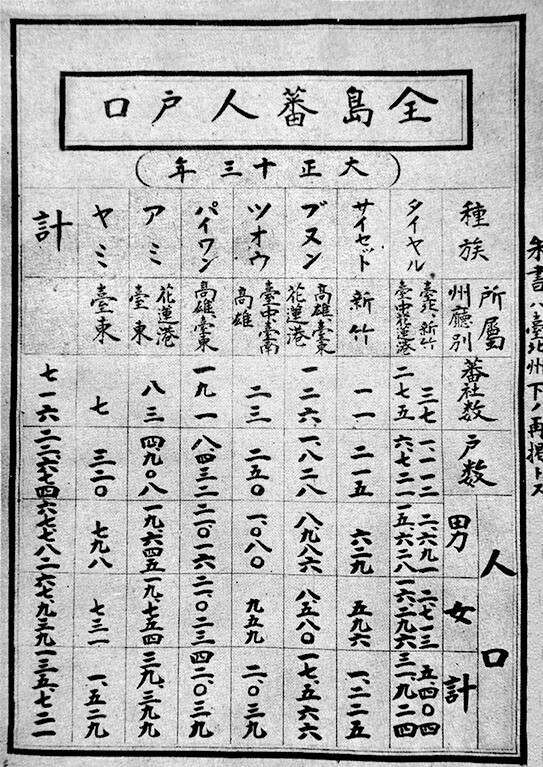 朱書ハ臺北州下ノ再掲トス
全島蕃人戸口
大正十三年
種族
所屬
州廳別
蕃社数
戸数
人口
男
女
計
タイヤル
臺北、新竹
臺中花蓮港
三七
二七五
一、一一二
六、七二一
二、六九一
一五、六二八
二七一三
一六、二九六
五四〇四
三一、九二四
サイセット
新竹
一一
二一五
六二九
五九六
一、二二五
ブヌン
高雄、臺東
花蓮港
一二六、
一、八二八
八九八六
八、五八〇
一七、五六六
ツオウ
臺中臺南
高雄
二三
二五〇
一、〇八〇
九五九
二、〇三九
パイワン
高雄、臺東
一九一
八、四三二
二一、〇一六
二一、〇二三
四二、〇三九
アミ
花蓮港
臺東
八三
四九〇八
一九、六四五
一九、七五四
三九、三九九
ヤミ
臺東
七
三二〇
七九八
七三一
一、五二九
計
七一六
二二、六七四
六七、七八二
六七、九三九
一三五、七二一